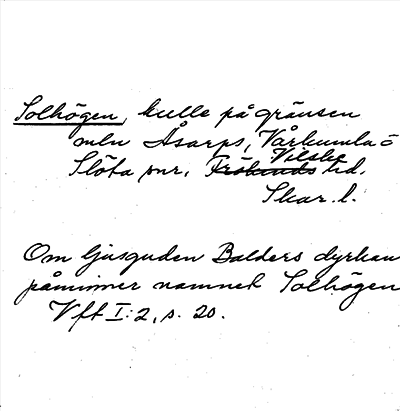 Solhögen, kulle på gränsen
mln Åsarps, Vårkumla o
Vilske
Slöta snr, Frökinds hd.
Skar. l.
Om ljusguden Balders dyrkan
påminner namnet Solhögen
Vft I:2, s. 20.